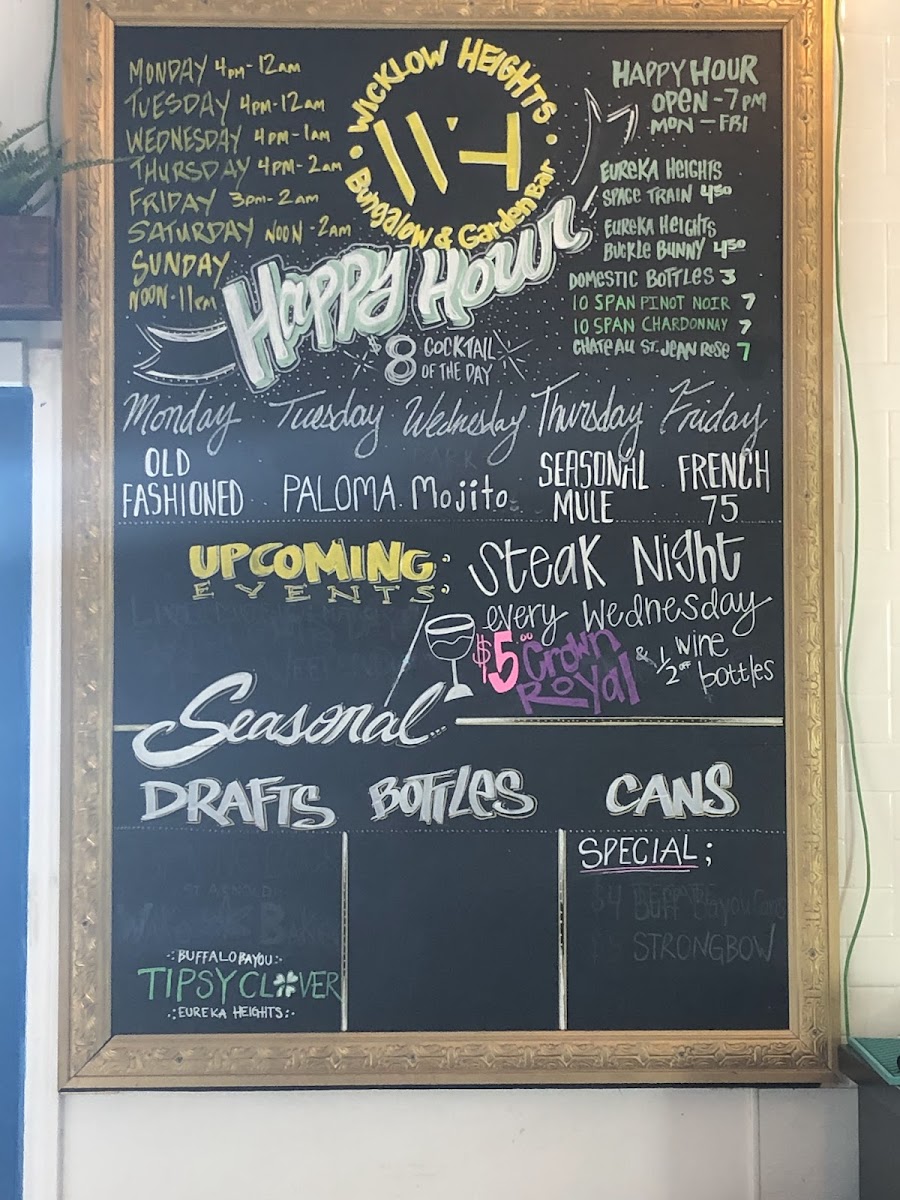 MONDAY 4PM-12AM
TUESDAY 4PM-12AM
WEDNESDAY 4PM-1AM
THURSDAY 4PM-2AM
FRIDAY 3PM-2AM
SATURDAY NOON-2AM
SUNDAY
NOON-11PM
WICKLOW HEIGHTS
WH
Bungalow & Garden Bar
HAPPY HOUR
OPEN-7PM
MON-FRI
EUREKA HEIGHTS
SPACE TRAIN 4.50
EUREKA HEIGHTS
BUCKLE BUNNY 4.50
DOMESTIC BOTTLES 3
10 SPAN PINOT NOIR 7
10 SPAN CHARDONNAY 7
CHATEAU ST. JEAN ROSE 7
Happy Hour
$8 COCKTAIL
OF THE DAY
Monday Tuesday Wednesday Thursday Friday
OLD
FASHIONED
PALOMA
Mojito
SEASONAL
MULE
FRENCH
75
UPCOMING
EVENTS:
Steak Night
every Wednesday
$5.00 Crown
Royal
& 1/2 off wine
bottles
Seasonal...
DRAFTS BOTTLES CANS
SPECIAL;
STRONGBOW
BUFFALO BAYOU
TIPSY CLOVER
EUREKA HEIGHTS